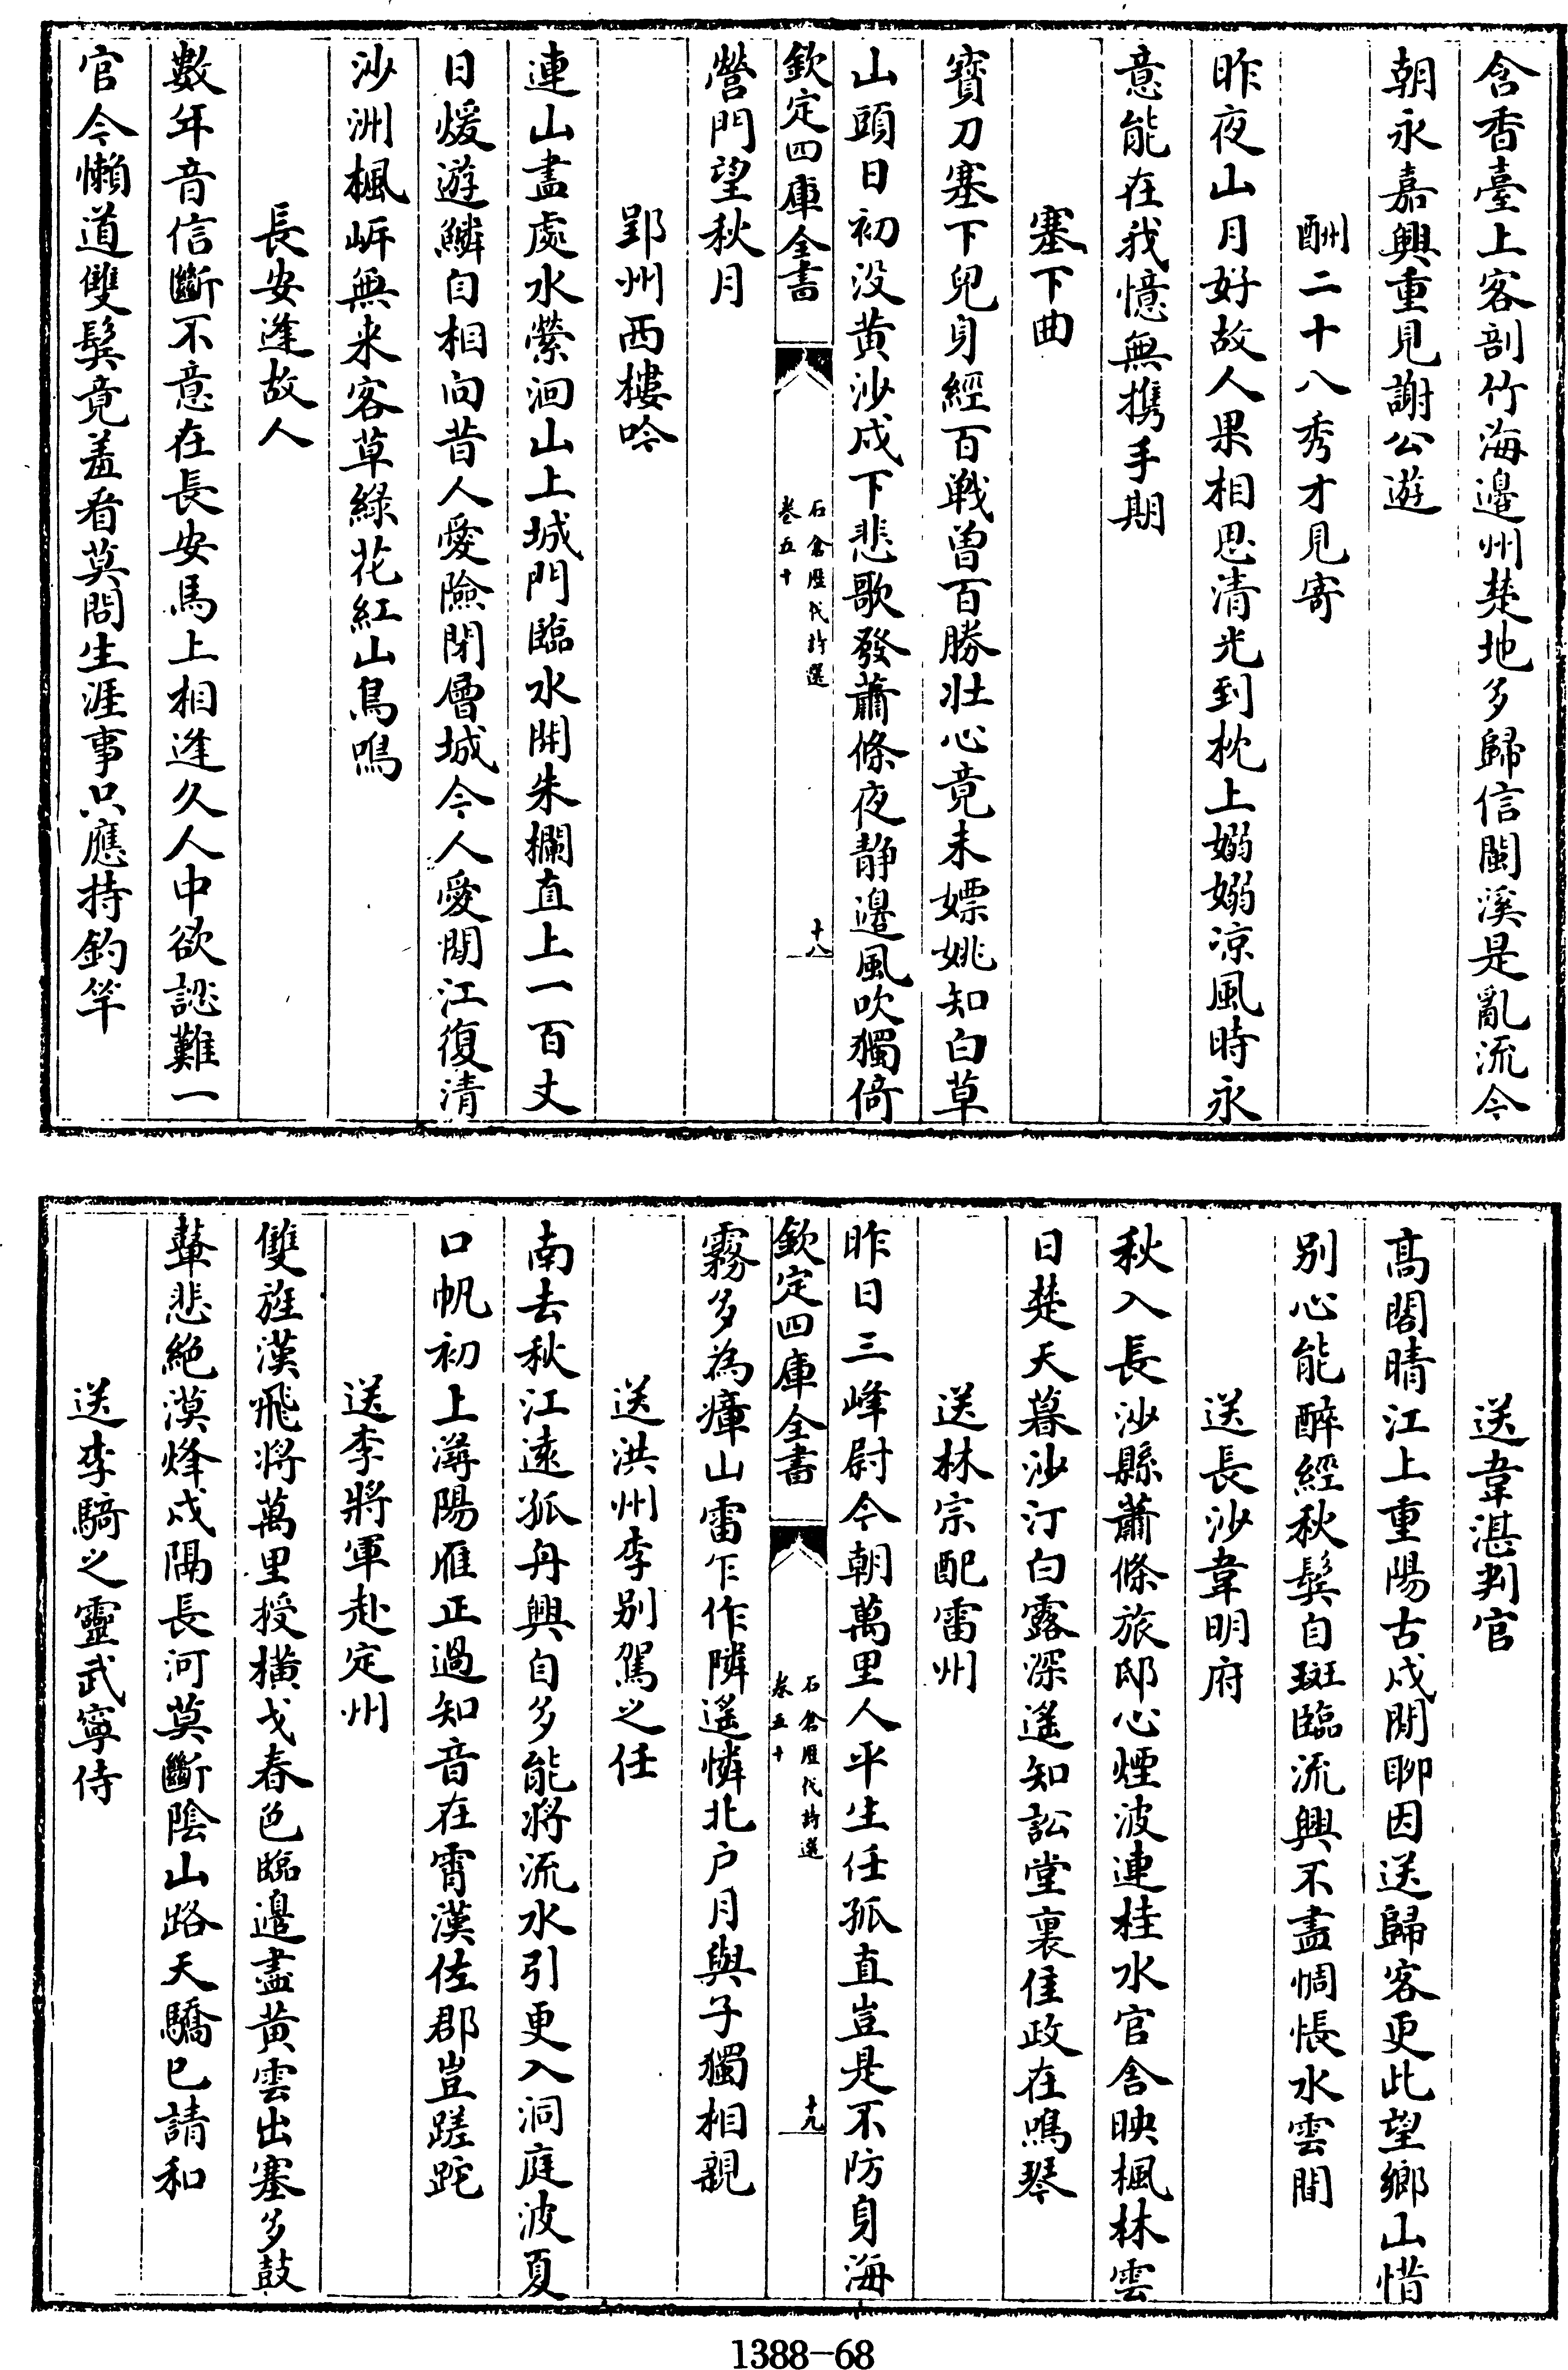 含香臺上客剖竹海邉州楚地多歸信閩溪是亂流今
朝永嘉興重見謝公遊
酬二十八秀才見寄
昨夜山月好故人果相思清光到枕上嫋嫋凉風時永
意能在我憶無携手期
塞下曲
寳刀塞下兒身經百戰曽百勝壯心竟未嫖姚知白草
山頭日初没黄沙戍下悲歌發蕭條夜静邉風吹獨倚
欽定四庫全書
石倉歷代詩選
卷五十
十八
營門望秋月
郢州西樓吟
連山盡處水縈洄山上城門臨水開朱欄直上一百丈
日煖遊鱗自相向昔人愛險閉層城今人愛閒江復清
沙洲楓岸無来客草緑花紅山鳥鳴
長安逢故人
數年音信斷不意在長安馬上相逢久人中欲認難一
官今懶道雙鬂竟羞看莫問生涯事只應持釣竿
送韋湛判官
髙閣晴江上重陽古戍閒聊因送歸客更此望鄉山惜
别心能醉經秋鬂自斑臨流興不盡惆悵水雲間
送長沙韋明府
秋入長沙縣蕭條旅邸心煙波連桂水官舎映楓林雲
日楚天暮沙汀白露深遥知訟堂裏佳政在鳴琴
送林宗配雷州
昨日三峰尉今朝萬里人平生任孤直豈是不防身海
欽定四庫全書
石倉歷代詩選
卷五十
十九
霧多為瘴山雷乍作隣遥憐北户月與子獨相親
送洪州李别駕之任
南去秋江逺孤舟興自多能將流水引更入洞庭波夏
口帆初上潯陽雁正過知音在霄漢佐郡豈蹉跎
送李將軍赴定州
雙旌漢飛將萬里授橫戈春色臨邉盡黄雲出塞多鼓
鼙悲絶漠烽戍隔長河莫斷陰山路天驕已請和
送李騎之靈武寧侍
1388-68